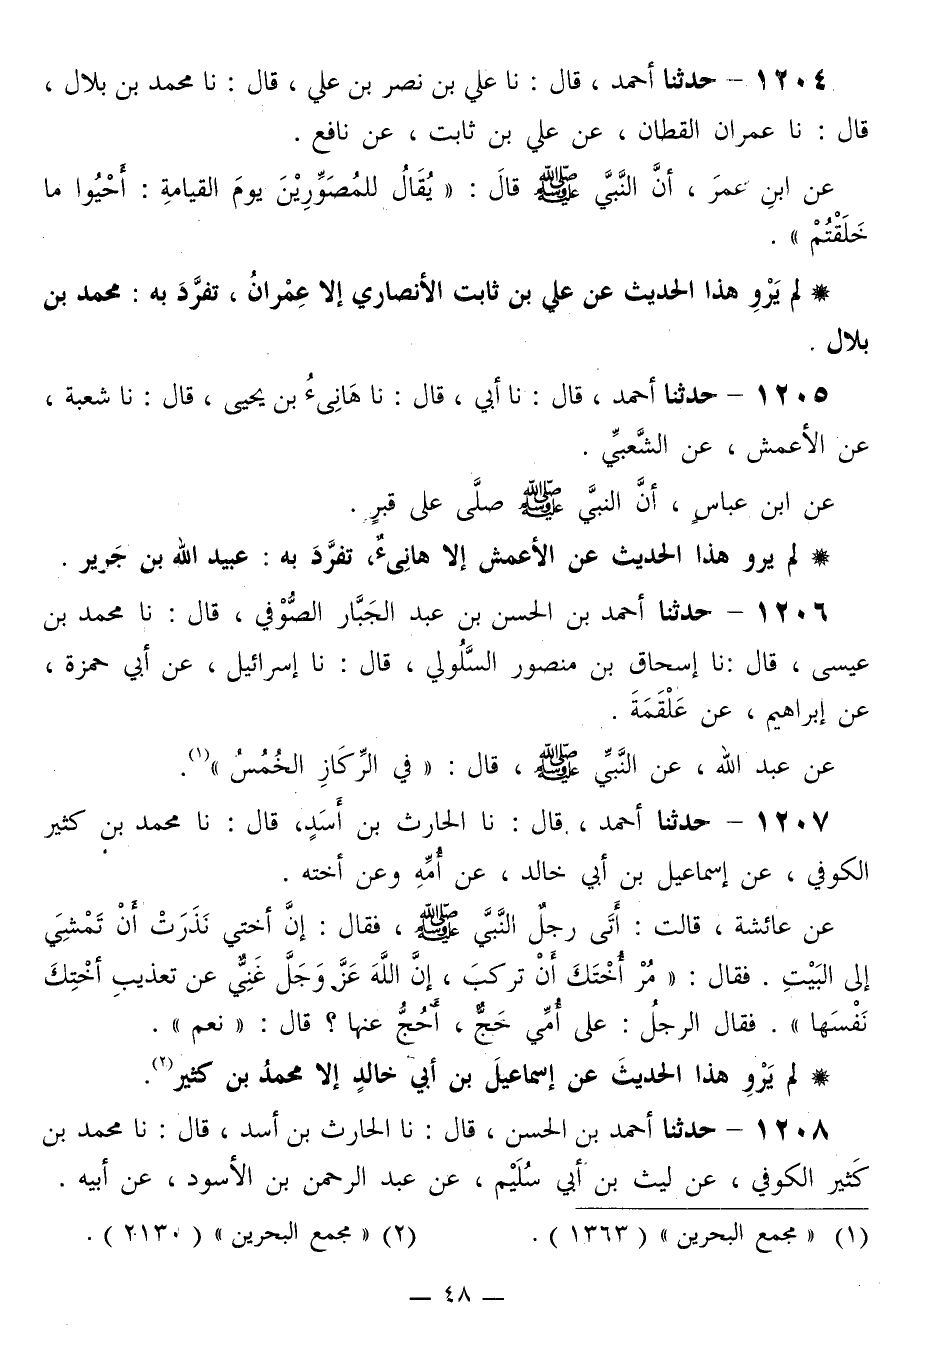 ١٢٠٤ – حدثنا أحمد ، قال : نا علي بن نصر بن علي ، قال : نا محمد بن بلال ،
قال : نا عمران القطان ، عن علي بن ثابت ، عن نافع .
عن ابنِ عمرَ ، أنَّ النَّبيَّ ﷺ قالَ : « يُقَالُ للمُصَوِّرِيْنَ يومَ القيامةِ : أَحْيُوا ما
خَلَقْتُمْ » .
* لم يَرْوِ هذا الحديث عن علي بن ثابت الأنصاري إلا عِمْرانُ ، تفرَّدَ به : محمد بن
بلال .
١٢٠٥ – حدثنا أحمد ، قال : نا أبي ، قال : نا هَانِىءُ بن يحيى ، قال : نا شعبة ،
عن الأعمش ، عن الشَّعبيِّ .
عن ابن عباسٍ ، أنَّ النبيَّ ﷺ صلَّى على قبرٍ .
* لم يرو هذا الحديث عن الأعمش إلا هانِىءٌ، تفرَّدَ به : عبيد الله بن جَرير .
١٢٠٦ – حدثنا أحمد بن الحسن بن عبد الجَبَّار الصُّوْفي ، قال : نا محمد بن
عيسى ، قال :نا إسحاق بن منصور السَّلُولي ، قال : نا إسرائيل ، عن أبي حمزة ،
عن إبراهيم ، عن عَلْقَمَةَ .
عن عبد الله ، عن النَّبيِّ ﷺ ، قال : « في الرِّكَازِ الخُمُسُ »(١).
١٢٠٧ – حدثنا أحمد ، قال : نا الحارث بن أَسَدٍ، قال : نا محمد بن كثير
الكوفي ، عن إسماعيل بن أبي خالد ، عن أُمِّهِ وعن أخته .
عن عائشة ، قالت : أَتَى رجلٌ النَّبيَّ ﷺ ، فقال : إنَّ أختي نَذَرَتْ أَنْ تَمْشِيَ
إلى البَيْتِ . فقال : « مُرْ أُخْتَكَ أَنْ تركبَ ، إنَّ اللَّهَ عَزَّ وَجَلَّ غَنِيٌّ عن تعذيبِ أخْتِكَ
نَفْسَها » . فقال الرجلُ : على أُمِّي حَجٌّ ، أَحُجُّ عنها ؟ قال : « نعم » .
* لم يَرْوِ هذا الحديثَ عن إسماعيلَ بن أبي خالدٍ إلا محمدُ بن كثير(٢).
١٢٠٨ – حدثنا أحمد بن الحسن ، قال : نا الحارث بن أسد ، قال : نا محمد بن
كَثير الكوفي ، عن ليث بن أبي سُلَيْم ، عن عبد الرحمن بن الأسود ، عن أبيه .
(١) « مجمع البحرين » ( ١٣٦٣ ) . (٢) « مجمع البحرين » ( ٢١٣٠ ) .
— ٤٨ —